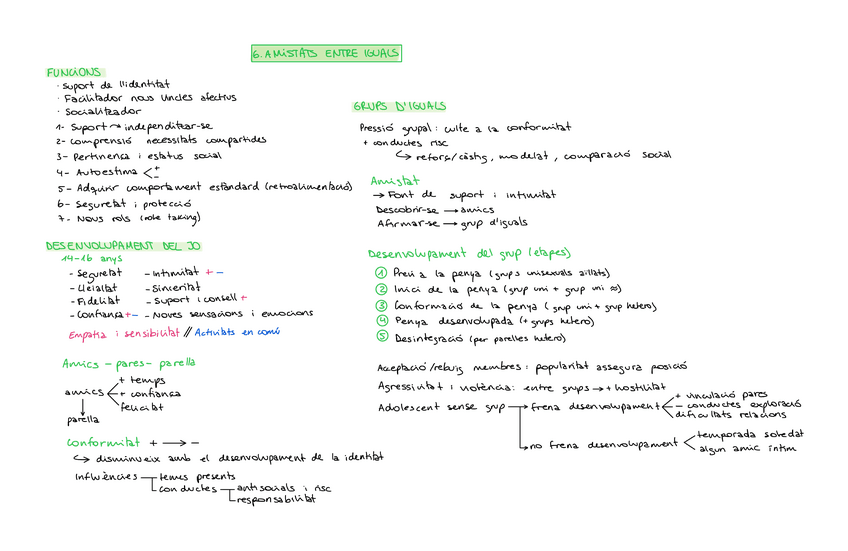 6. AMISTATS ENTRE IGUALS
FUNCIONS
· Suport de l'identitat
· Facilitador nous vincles afectius
· Socialitzador
1- Suport → independitzar-se
2- Comprensió necessitats compartides
3- Pertinença i estatus social
4- Autoestima < + -
5- Adquirir comportament estàndard (retroalimentació)
6- Seguretat i protecció
7- Nous rols (role taking)
DESENVOLUPAMENT DEL JO
14-16 anys
- Seguretat - Intimitat + -
- Lleialtat - Sinceritat
- Fidelitat - Suport i consell +
- Confiança + - - Noves sensacions i emocions
Empatia i sensibilitat // Activitats en comú
Amics - pares - parella
+ temps
amics + confiança
felicitat
parella
Conformitat + → -
↪ disminueix amb el desenvolupament de la identitat
Influències temes presents
conductes antisocials i risc
responsabilitat
GRUPS D'IGUALS
Pressió grupal: culte a la conformitat
+ conductes risc
↪ reforç/càstig, modelat, comparació social
Amistat
→ Font de suport i intimitat
Descobrir-se → amics
Afirmar-se → grup d'iguals
Desenvolupament del grup (etapes)
1 Previ a la penya (grups unisexuals aïllats)
2 Inici de la penya (grup uni + grup uni ≈)
3 Conformació de la penya (grup uni + grup hetero)
4 Penya desenvolupada (+ grups hetero)
5 Desintegració (per parelles hetero)
Acceptació/rebuig membres: popularitat assegura posició
Agressivitat i violència: entre grups → + hostilitat
Adolescent sense grup → frena desenvolupament + vinculació pares
- conductes exploració
dificultats relacions
→ no frena desenvolupament temporada soledat
algun amic íntim